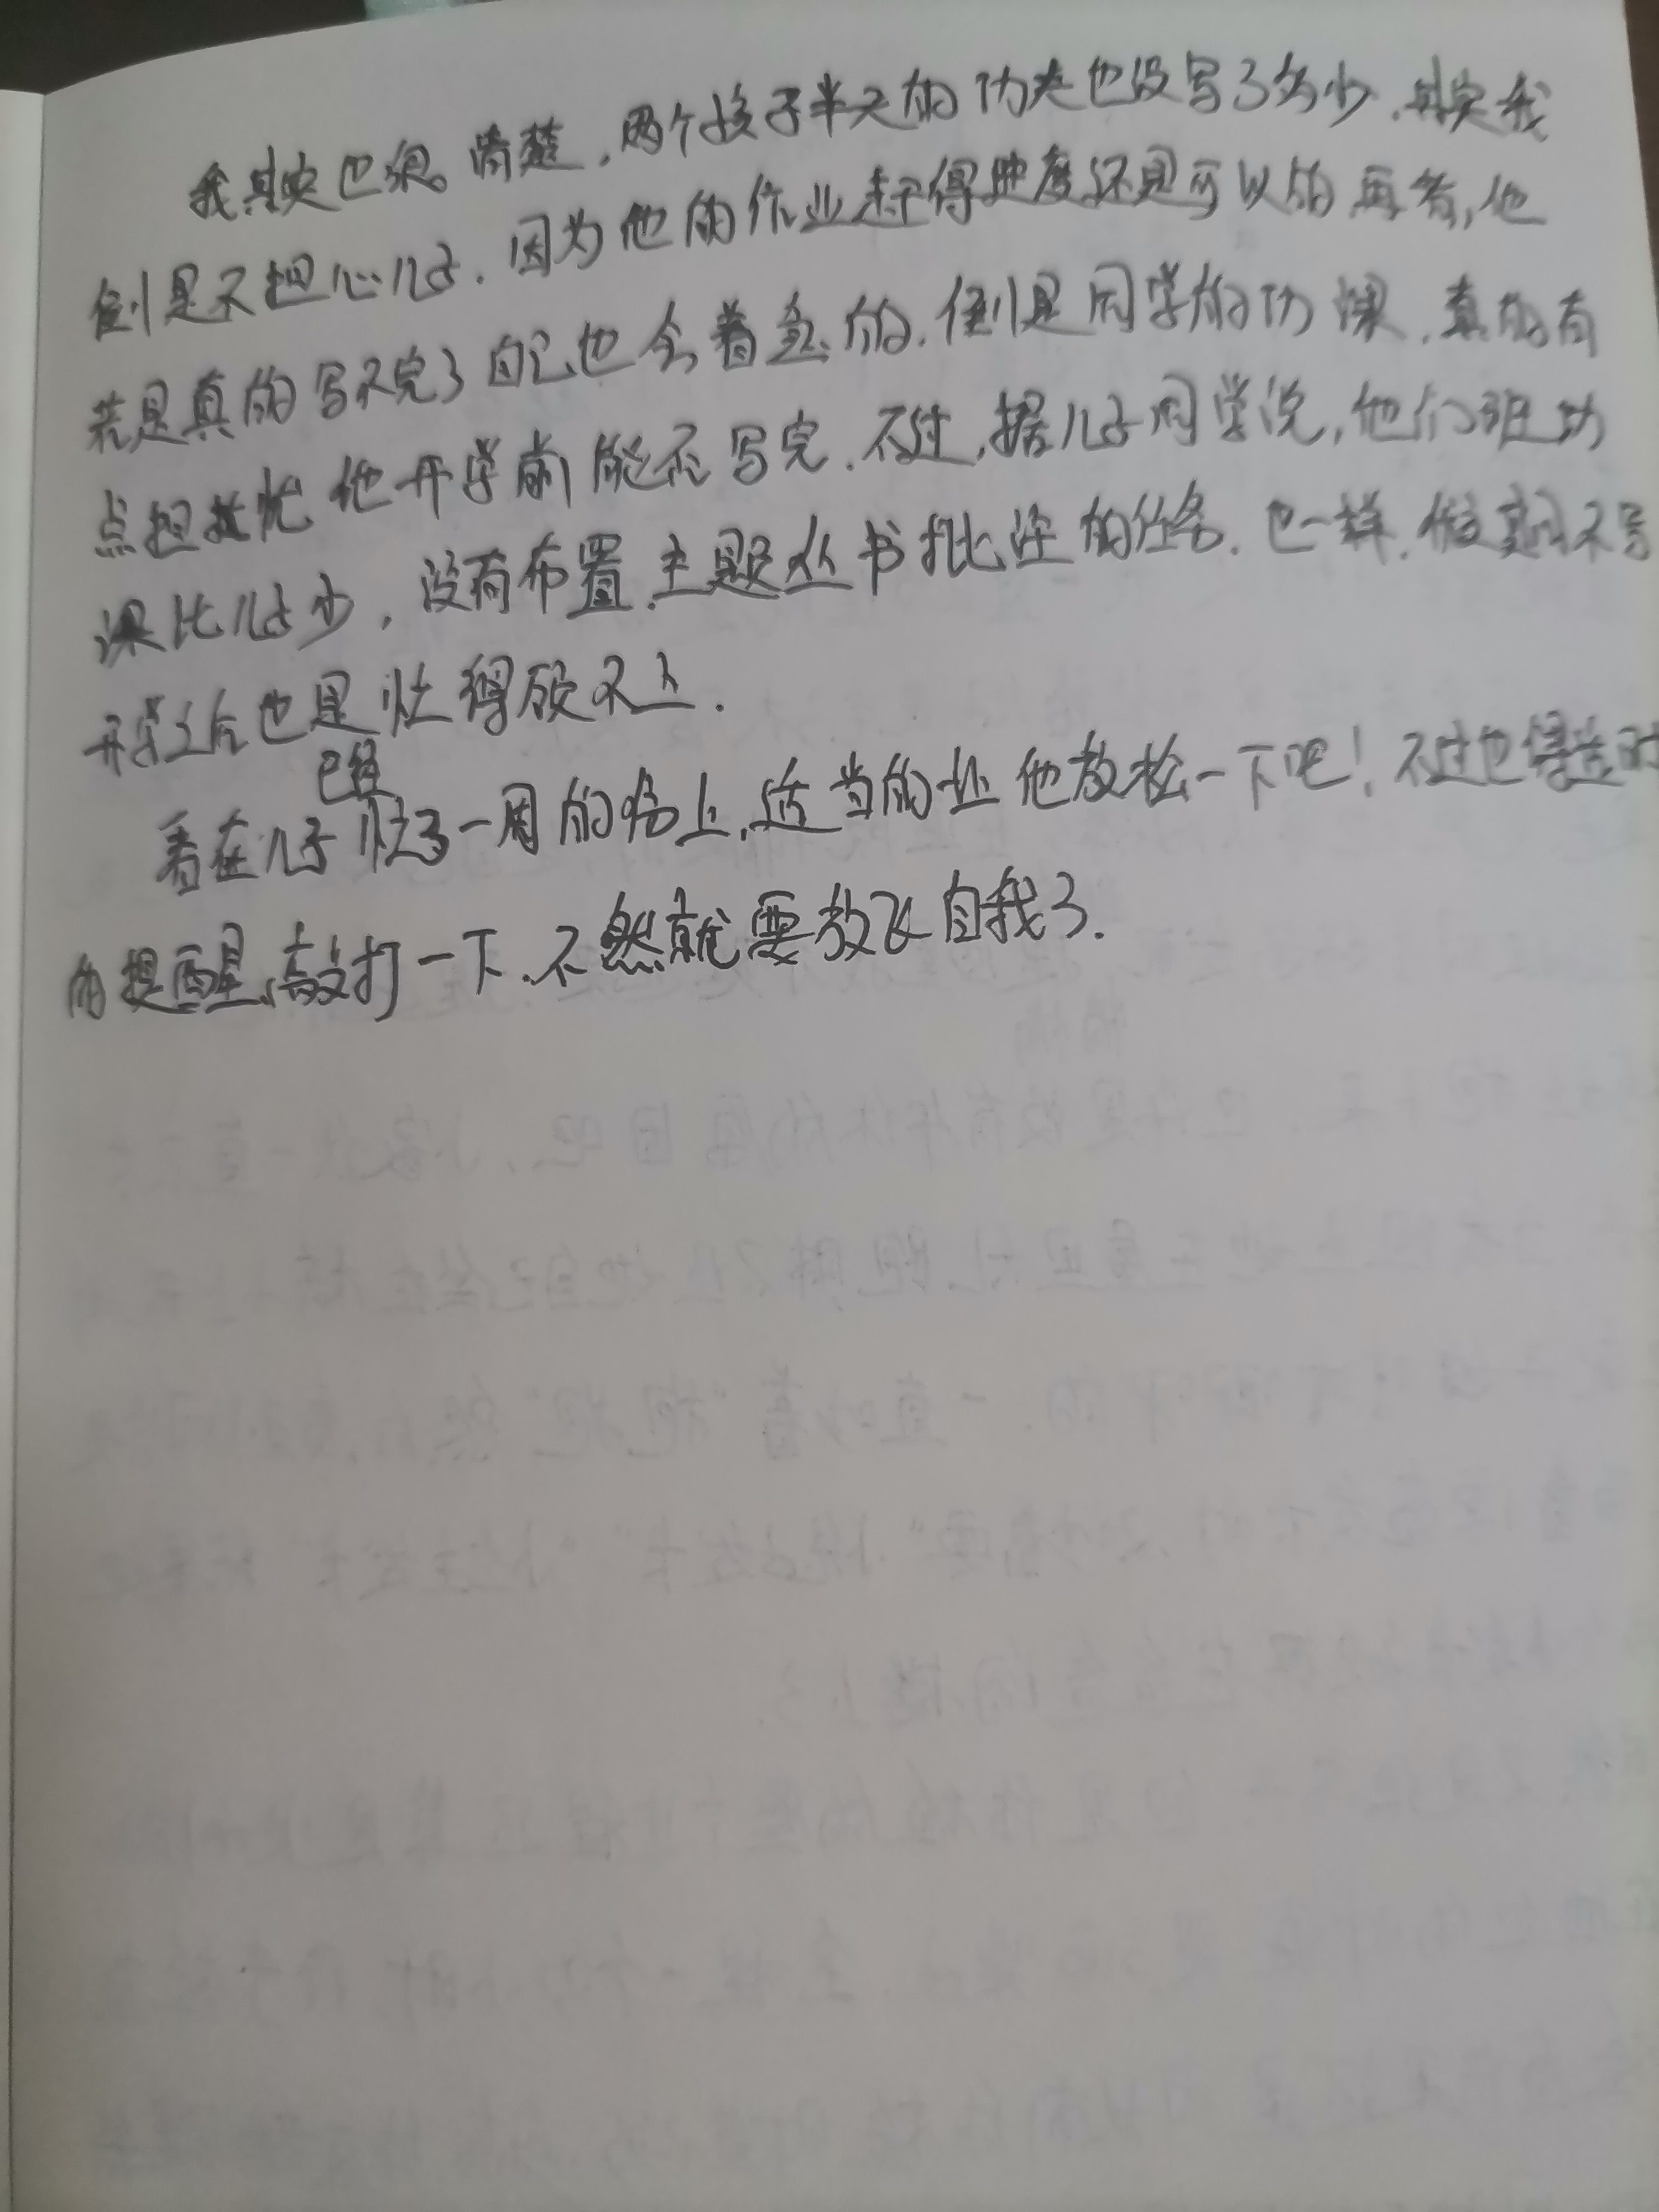 我其实也很清楚，两个孩子半天的功夫也没写了多少，其实我
倒是不担心儿子，因为他的作业赶得进度还是可以的，再者，他
若是真的写不完了自己也会着急的。倒是同学的功课，真的有
点担扰忧他开学前能否写完。不过，据儿子同学说，他们班功
课比儿子少，没有布置主题丛书批注的任务。也一样，假期不写
开学之后也是忙得顾不上。
已经
看在儿子忙了一周的份上，适当的让他放松一下吧！不过也得适时
的提醒、敲打一下，不然就要放飞自我了。